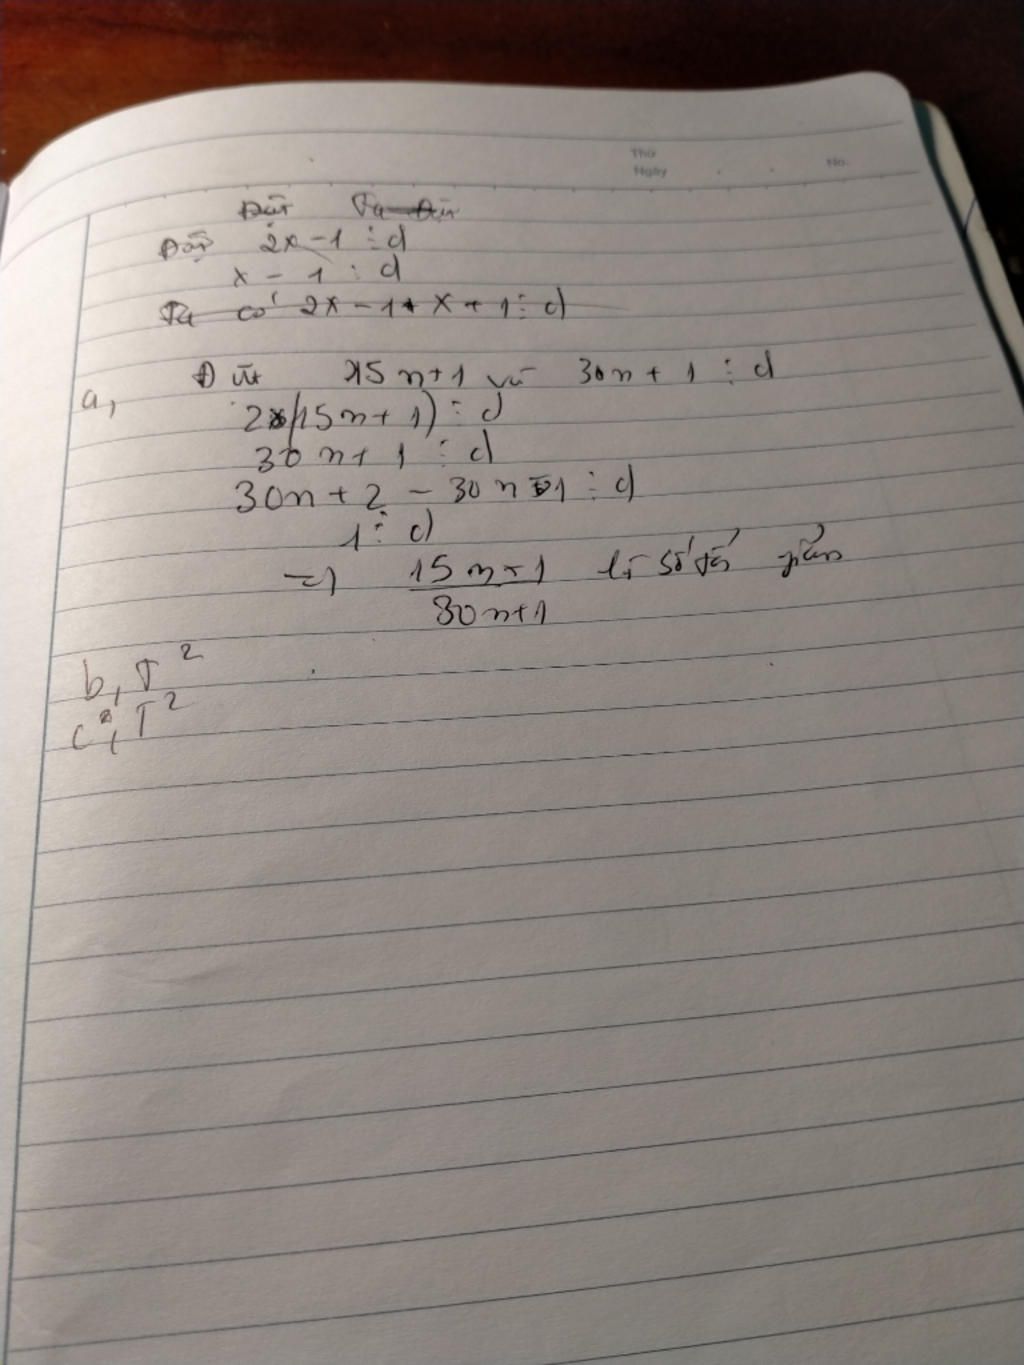 Thứ
Ngày No.
Đặt
Đặt 2x - 1 ⋮ d
x - 1 ⋮ d
Ta có 2x - 1 + x + 1 ⋮ d
a, Đặt 15n + 1 và 30n + 1 ⋮ d
2(15n + 1) ⋮ d
30n + 1 ⋮ d
30n + 2 - 30n - 1 ⋮ d
1 ⋮ d
=> 15n + 1 là số tối giản
30n + 1
b, T²
c, T²